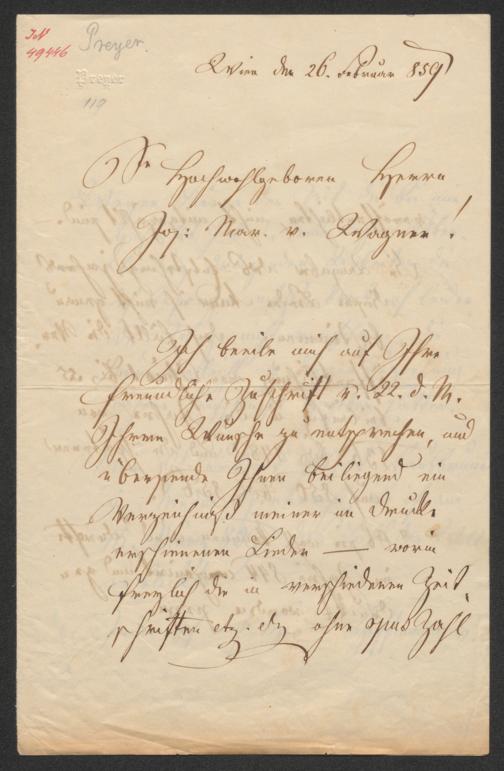 IN
49446
Preyer.
Preyer
119
Wien den 26. Februar 859
Sr Hochwohlgeboren Herrn
Jos: Mar. v. Wagner!
Ich beeile mich auf Ihre
freundliche Zuschrift v. 22. d. M.
Ihrem Wunsche zu entsprechen, und
übersende Ihnen beiliegend ein
Verzeichniß meiner im Drucke
erschienenen Lieder — worin
freylich die in verschiedenen Zeit-
schriften etz. etz ohne opus Zahl